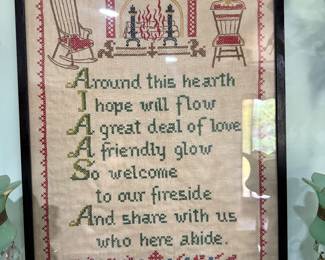 Around this hearth
I hope will flow
A great deal of love
A friendly glow
So welcome
to our fireside
And share with us
who here abide.